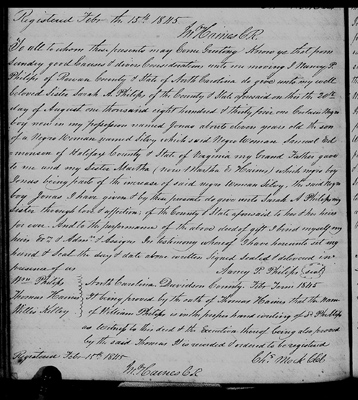 Registered Feby th 15th 1845
M. Haines C.R.
To all to whom these presents may Come Greeting Know ye that from
sundry good Causes & divers Considerations unto me moving I Nancy P.
Philips of Rowan County & State of North Carolina do give unto my well
beloved Sister Sarah A. Philips of the County & State aforesaid on this the 20th
day of August one thousand eight hundred & thirty five one Certain Negro
boy now in my possession named Jonas about eleven years old the son
of a Negro Woman named Silvy which said Negro Woman Samuel Ed
munson of Halifax County & State of Virginia my Grand Father gave
to me and my Sister Martha (now Martha Haines) which negro boy
Jonas being part of the increase of said negro Woman Silvy. the said Negro
boy Jonas I have given & by these presents do give unto Sarah A. Philips my
Sister through love & affection of the County & State aforesaid to her & her heirs
for ever. And to the performance of the above deed of gift I bind myself my
heirs Exrs & Admrs & Assigns In testimony whereof I have hereunto set my
hand & Seal the day & date above written Signed Sealed & delivered in
presence of us
Nancy P. Philips (seal)
Wm Philips
Thomas Haines
Willis Kelley
North Carolina Davidson County Feby Term 1845
It being proved by the oath of Thomas Haines that the Name
of William Philips is in the proper hand writing of
as witness to this deed & the Execution thereof being also proved
by the said Thomas It is recorded & ordered to be registered
Registered Feby 15th 1845
Chs. Mock Clk
M. Haines C.R.